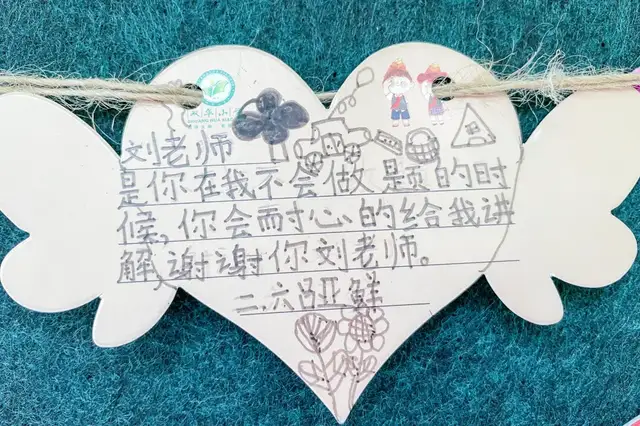 刘老师
是你在我不会做题的时
候,你会耐心的给我讲
解,谢谢你刘老师。
二.六吕亚鲜